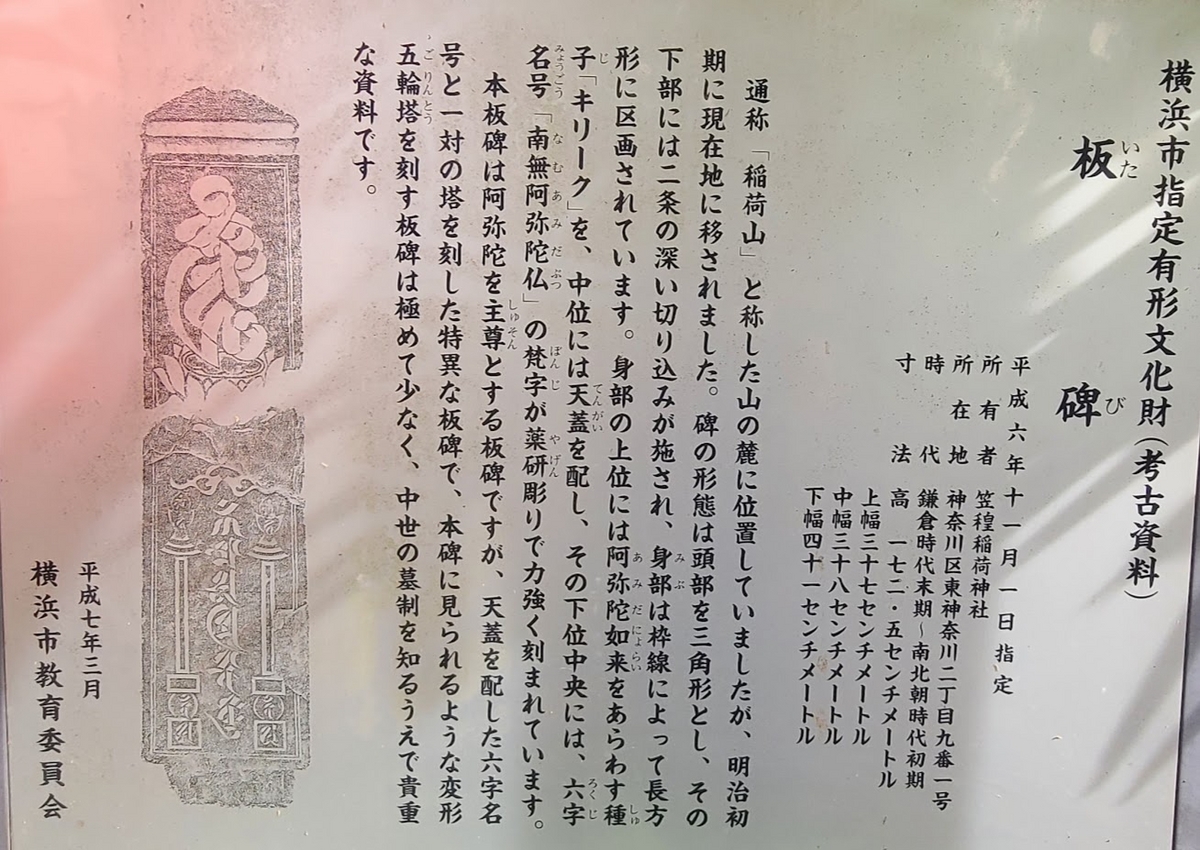 横浜市指定有形文化財(考古資料)
板碑
いたび
平成六年十一月一日指定
所有者 笠䅣稲荷神社
所在地 神奈川区東神奈川二丁目九番一号
時代 鎌倉時代末期~南北朝時代初期
寸法 高 一七二・五センチメートル
上幅三十七センチメートル
中幅三十八センチメートル
下幅四十一センチメートル
通称「稲荷山」と称した山の麓に位置していましたが、明治初
期に現在地に移されました。碑の形態は頭部を三角形とし、その
下部には二条の深い切り込みが施され、身部は枠線によって長方
形に区画されています。身部の上位には阿弥陀如来をあらわす種
子「キリーク」を、中位には天蓋を配し、その下位中央には、六字
名号「南無阿弥陀仏」の梵字が薬研彫りで力強く刻まれています。
本板碑は阿弥陀を主尊とする板碑ですが、天蓋を配した六字名
号と一対の塔を刻した特異な板碑で、本碑に見られるような変形
五輪塔を刻す板碑は極めて少なく、中世の墓制を知るうえで貴重
な資料です。
平成七年三月
横浜市教育委員会